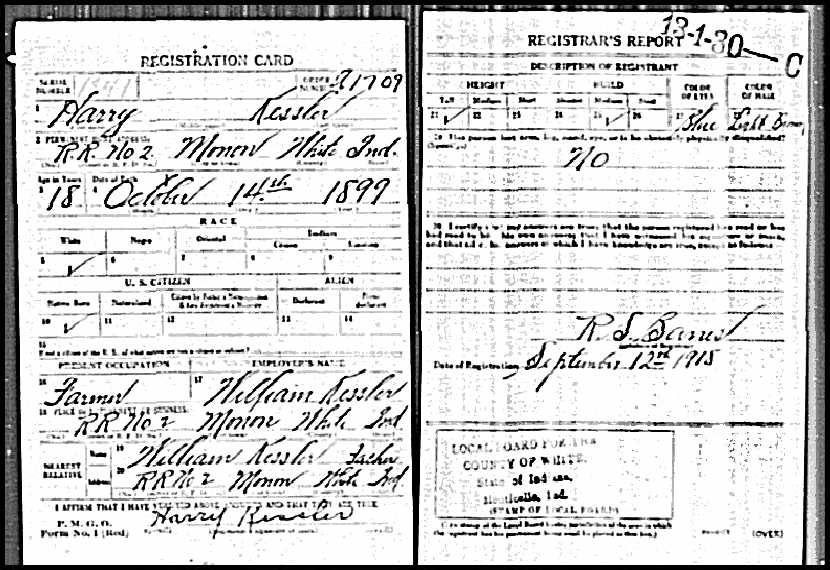 REGISTRATION CARD
SERIAL NUMBER 1841 ORDER NUMBER
1 Harry Kessler
2 PERMANENT HOME ADDRESS:
R.R. No 2 Monon White Ind.
Age in Years Date of Birth
3 18 4 October 14th 1899
RACE
White Negro Oriental Indian
Citizen Noncitizen
5 ✓ 6 7 8 9
U. S. CITIZEN ALIEN
Native Born Naturalized Declarant
10 ✓ 11 12 13 14
15
If not a citizen of the U. S., of what nation are you a citizen or subject?
PRESENT OCCUPATION EMPLOYER'S NAME
16 Farmer 17 William Kessler
18 PLACE OF EMPLOYMENT OR BUSINESS:
RR No 2 Monon White Ind
NEAREST RELATIVE
Name 19 William Kessler Father
Address 20 RR No 2 Monon White Ind
I AFFIRM THAT I HAVE VERIFIED ABOVE ANSWERS AND THAT THEY ARE TRUE
P. M. G. O.
Form No. 1 (Red) Harry Kessler
13-1-30-C
REGISTRAR'S REPORT
DESCRIPTION OF REGISTRANT
HEIGHT BUILD COLOR OF EYES COLOR OF HAIR
Tall Medium Short Slender Medium Stout
21 ✓ 22 23 24 25 ✓ 26 27 Blue Light Brown
29 Has person lost arm, leg, hand, eye, or is he obviously physically disqualified?
(Specify.)
No
30 I certify that my answers are true; that the person registered has read or has
had read to him his own answers; that I have witnessed his signature or mark,
and that all of his answers of which I have knowledge are true, except as follows:
R S Barnes
Date of Registration September 12th 1918
LOCAL BOARD FOR THE
COUNTY OF WHITE,
State of Indiana,
Monticello, Ind.
(STAMP OF LOCAL BOARD)
(The stamp of the Local Board having jurisdiction of the area in which
the registrant has his permanent home shall be placed in this box.)
(OVER)